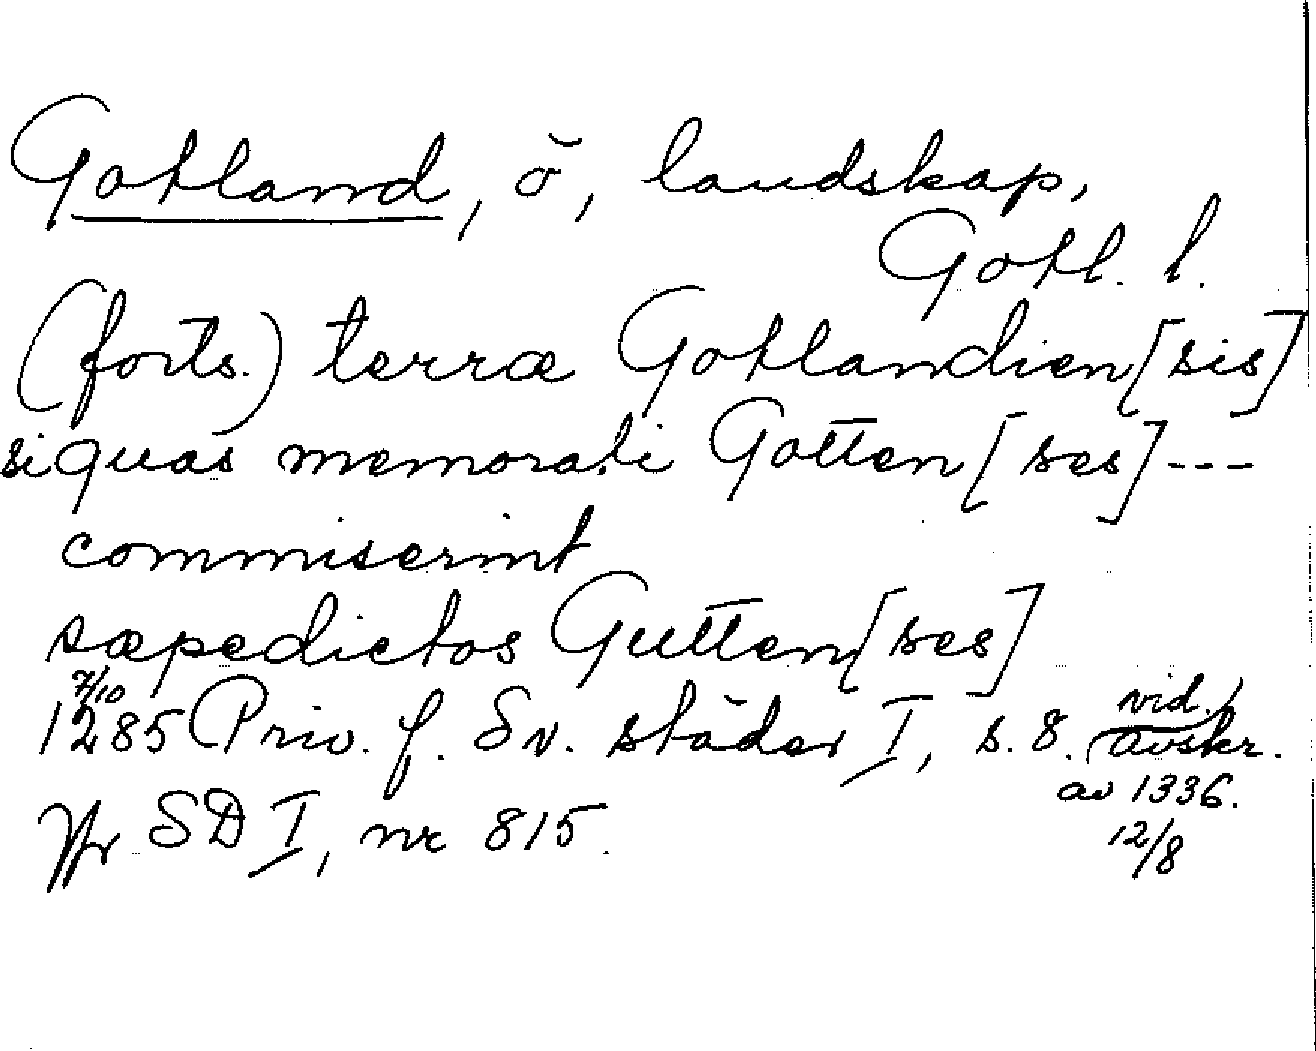 Gotland, ö, landskap,
Gotl. l.
(forts.) terræ Gotlandien[sis]
siquas memorati Gotten[ses]---
commiserint
sæpedictos Gutten[ses]
7/10
1285 Priv. f. Sv. städer I, s. 8. (vid. avskr.
av 1336. 12/8)
Jfr SD I, nr 815.